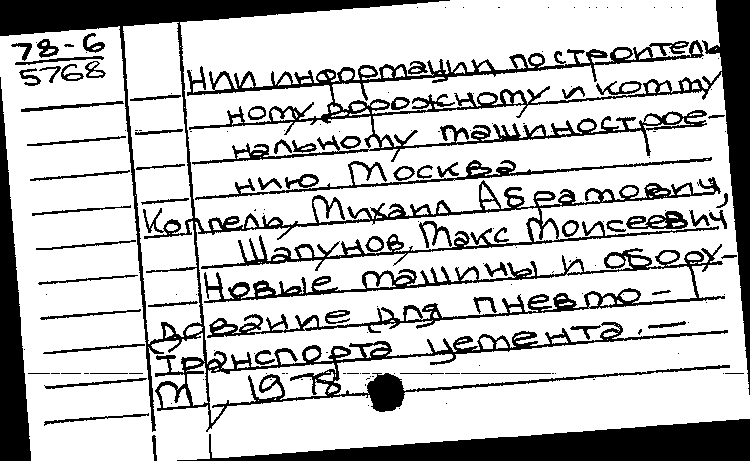 78-6
5768
НИИ информации по строитель
ному, дорожному и комму
нальному машинострое-
нию. Москва.
Коппель, Михаил Абрамович,
Шапунов, Макс Моисеевич
Новые машины и обору-
дование для пневмо-
транспорта цемента. —
М., 1978.